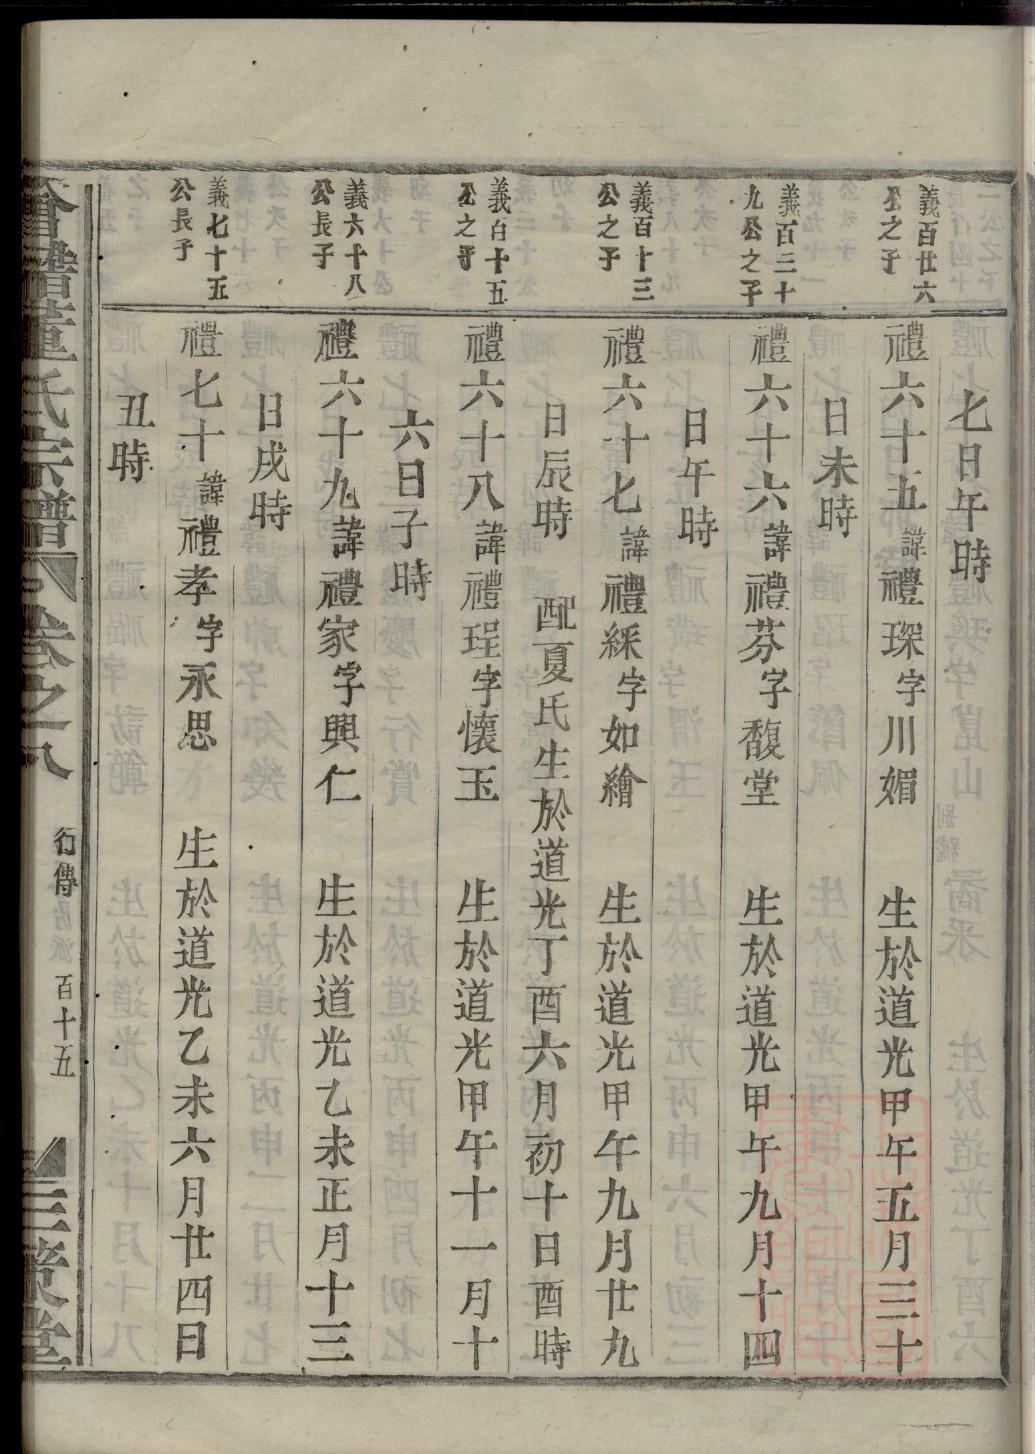 七日午時
義百廿六
公之子
禮六十五諱禮琛字川媚 生於道光甲午五月三十
日未時
義百二十
九公之子
禮六十六諱禮芬字馥堂 生於道光甲午九月十四
日午時
義百十三
公之子
禮六十七諱禮綵字如繪 生於道光甲午九月廿九
日辰時 配夏氏生於道光丁酉六月初十日酉時
義百十五
公之子
禮六十八諱禮珵字懷玉 生於道光甲午十一月十
六日子時
義六十八
公長子
禮六十九諱禮家字興仁 生於道光乙未正月十三
日戌時
義七十五
公長子
禮七十諱禮孝字永思 生於道光乙未六月廿四日
丑時
董氏宗譜 卷之八 行傳 百十五 三策堂